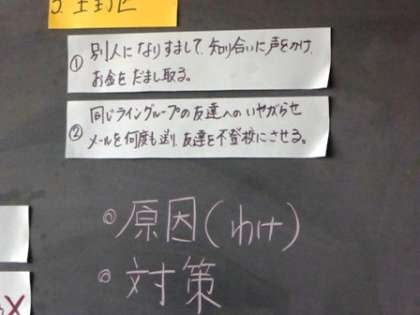 ① 別人になりすまして、知り合いに声をかけ、
お金をだまし取る。
② 同じライングループの友達へのいやがらせ
メールを何度も送り、友達を不登校にさせる。
◎原因(わけ)
◎対策